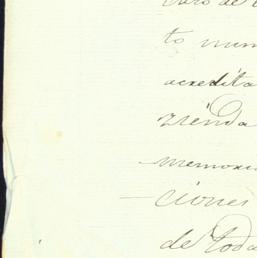 to num
acredita
zienda
memori
ciones
de toda